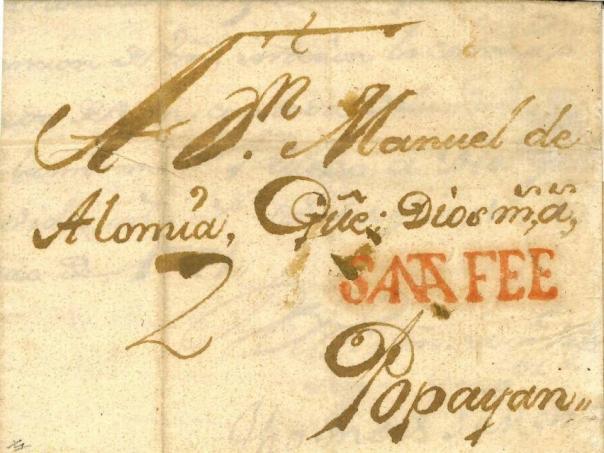 A Dn. Manuel de
Alomia, Gûe. Dios ms. as.
2 SANTA FEE
Popayan